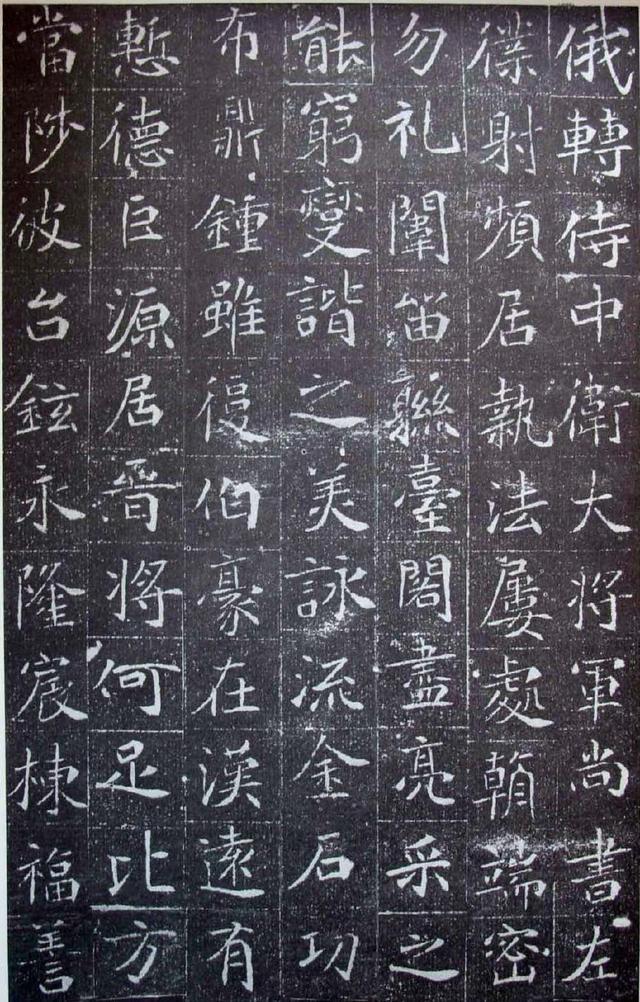 俄轉侍中衛大將軍尚書左
僕射頻居執法屢處朝端密
勿礼闈留聯臺閣盡亮采之
能窮變諧之美詠流金石功
布鼎鍾雖復伯豪在漢遠有
慙德巨源居晉將何足比方
當陟彼台鉉永隆宸棟福善